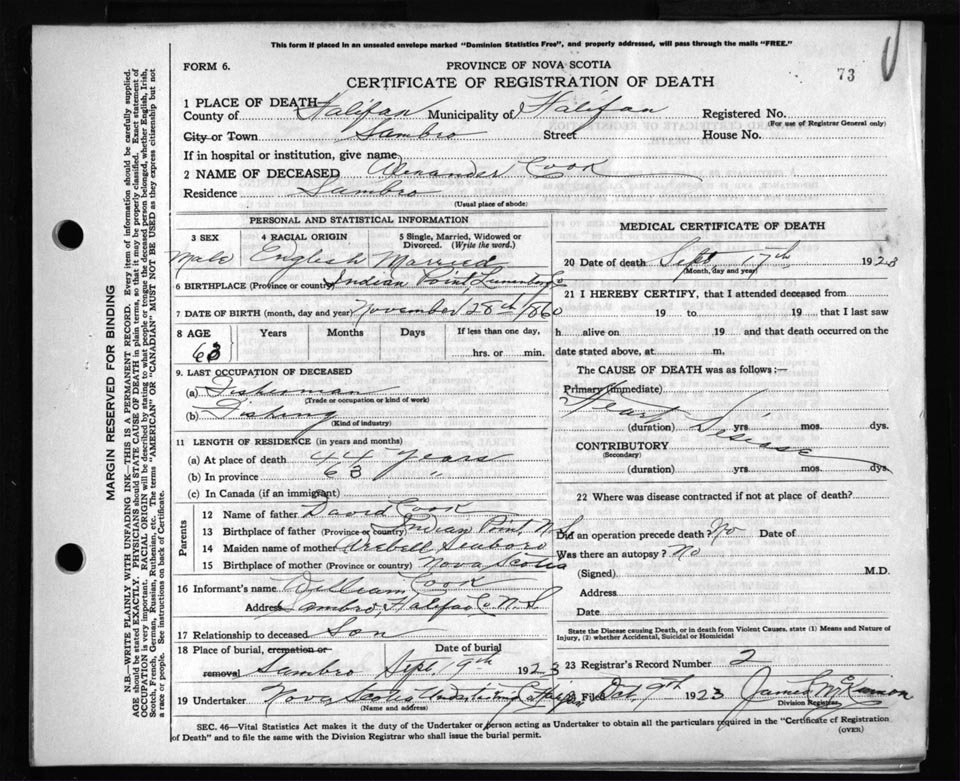 This form if placed in an unsealed envelope marked "Dominion Statistics Free", and properly addressed, will pass through the mails "FREE."
FORM 6.
PROVINCE OF NOVA SCOTIA
CERTIFICATE OF REGISTRATION OF DEATH
73
1 PLACE OF DEATH—
County of Halifax Municipality of Halifax Registered No.
(For use of Registrar General only)
City or Town Sambro Street House No.
If in hospital or institution, give name
2 NAME OF DECEASED Alexander Cook
Residence Sambro
(Usual place of abode)
PERSONAL AND STATISTICAL INFORMATION
3 SEX 4 RACIAL ORIGIN 5 Single, Married, Widowed or Divorced. (Write the word.)
Male English Married
6 BIRTHPLACE (Province or country) Indian Point, Lunenburg Co
7 DATE OF BIRTH (month, day and year) November 28th 1860
8 AGE Years Months Days If less than one day,
63 hrs. or min.
9. LAST OCCUPATION OF DECEASED
(a) Fisherman
(Trade or occupation or kind of work)
(b) Fishing
(Kind of industry)
11 LENGTH OF RESIDENCE (in years and months)
(a) At place of death 44 years
(b) In province 63 "
(c) In Canada (if an immigrant)
Parents
12 Name of father David Cook
13 Birthplace of father (Province or country) Indian Point N.S.
14 Maiden name of mother
15 Birthplace of mother (Province or country) Nova Scotia
16 Informant's name William Cook
Address Sambro, Halifax Co. N.S.
17 Relationship to deceased Son
18 Place of burial, cremation or removal Date of burial
Sambro Sept. 19th 1923
19 Undertaker Nova Scotia Undertaking Co Halifax
(Name and address)
MEDICAL CERTIFICATE OF DEATH
20 Date of death Sept 17th 1923
(Month, day and year)
21 I HEREBY CERTIFY, that I attended deceased from
19 to 19 that I last saw
h alive on 19 and that death occurred on the
date stated above, at m.
The CAUSE OF DEATH was as follows:—
Primary (immediate)
Heart Disease
(duration) yrs. mos. dys.
CONTRIBUTORY
(Secondary)
(duration) yrs. mos. dys.
22 Where was disease contracted if not at place of death?
Did an operation precede death? No Date of
Was there an autopsy? No
(Signed) M.D.
Address
Date
State the Disease causing Death, or in death from Violent Causes, state (1) Means and Nature of Injury, (2) whether Accidental, Suicidal or Homicidal
23 Registrar's Record Number 2
Filed Oct. 9th 1923 James McKinnon
Division Registrar
SEC. 46—Vital Statistics Act makes it the duty of the Undertaker or person acting as Undertaker to obtain all the particulars required in the "Certificate of Registration
of Death" and to file the same with the Division Registrar who shall issue the burial permit.
(OVER)
MARGIN RESERVED FOR BINDING
N.B.—WRITE PLAINLY WITH UNFADING INK—THIS IS A PERMANENT RECORD. Every item of information should be carefully supplied.
AGE should be stated EXACTLY. PHYSICIANS should STATE CAUSE OF DEATH in plain terms, so that it may be properly classified. Exact statement of
OCCUPATION is very important. RACIAL ORIGIN will be described by stating to what people or tongue the deceased person belonged, whether English, Irish,
Scotch, French, German, Russian, Ruthenian, etc. The terms "AMERICAN" OR "CANADIAN" MUST NOT BE USED as they express citizenship but not
a race or people. See instructions on back of Certificate.